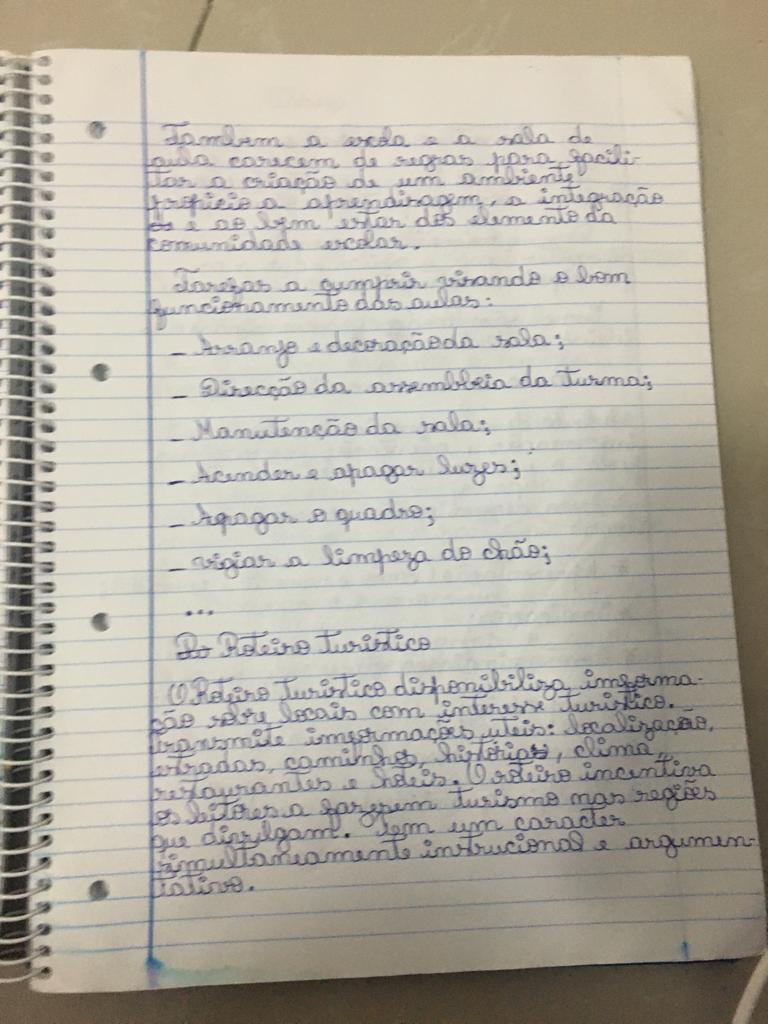 Também a escola e a sala de
aula carecem de regras para facili-
tar a criação de um ambiente
propicio a aprendizagem, a integração
e ao bem estar dos elemento da
comunidade escolar.
Tarefas a cumprir visando o bom
funcionamento das aulas:
- Arranjo e decoração da sala;
- Direcção da assembleia da turma;
- Manutenção da sala;
- Acender e apagar luzes;
- Apagar o quadro;
- vigiar a limpeza do chão;
...
Ro Roteiro Turistico
O Roteiro Turistico disponibiliza imforma-
ção sobre locais com interesse turistico.
transmite imformações uteis: localização,
estradas, caminhos, histórias, clima,
restaurantes e hoteis. O roteiro incentiva
os leitores a fazerem turismo nas regiões
que divulgam. Tem um caracter
simultaneamente instrucional e argumen-
tativo.